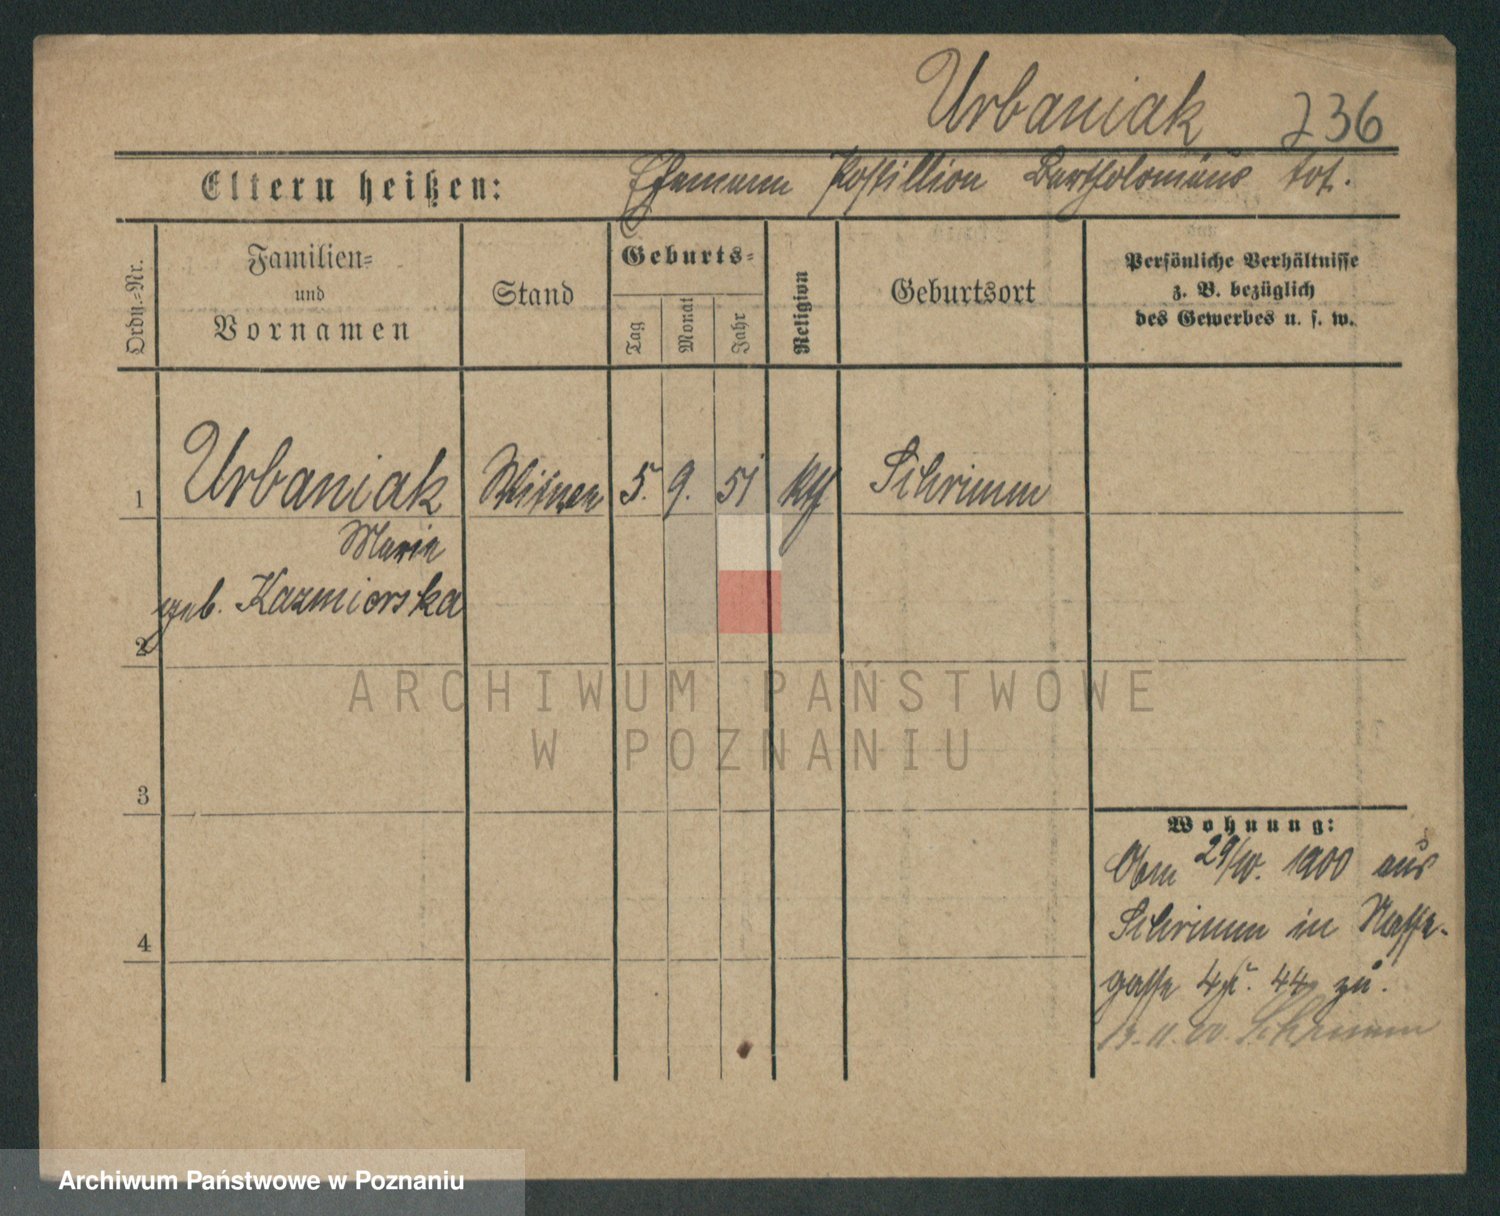 Urbaniak 736
Eltern heißen: Ehemann Postillion Bartholomäus tot.
Ordn.=Nr.
Familien=
und
Vornamen
Stand
Geburts=
Tag
Monat
Jahr
Religion
Geburtsort
Persönliche Verhältnisse
z. B. bezüglich
des Gewerbes u. s. w.
1 Urbaniak Wittwe 5. 9. 51 kth Schrimm
Marie
geb. Kazmierska
2
3
4
Wohnung:
Obm 29/10. 1900 aus
Schrimm in
gasse 44 zu.
13.11.00. Schrimm
ARCHIWUM PAŃSTWOWE
W POZNANIU
Archiwum Państwowe w Poznaniu